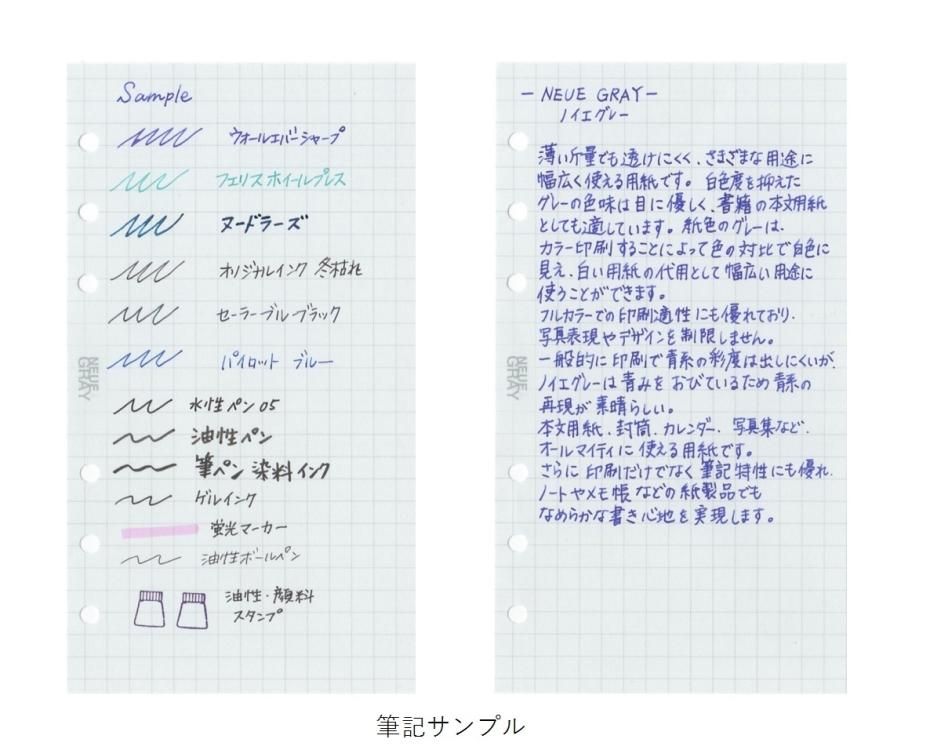 Sample
ウォールエバーシャープ
フェリスホイールプレス
ヌードラーズ
オリジナルインク 冬枯れ
セーラーブルーブラック
パイロット ブルー
水性ペン 05
油性ペン
筆ペン 染料インク
ゲルインク
蛍光マーカー
油性ボールペン
油性・顔料
スタンプ
NEUE
GRAY
— NEUE GRAY —
ノイエグレー
薄い斤量でも透けにくく、さまざまな用途に
幅広く使える用紙です。白色度を抑えた
グレーの色味は目に優しく、書籍の本文用紙
としても適しています。紙色のグレーは、
カラー印刷することによって色の対比で白色に
見え、白い用紙の代用として幅広い用途に
使うことができます。
フルカラーでの印刷適性にも優れており、
写真表現やデザインを制限しません。
一般的に印刷で青系の彩度は出しにくいが、
ノイエグレーは青みをおびているため青系の
再現が素晴らしい。
本文用紙、封筒、カレンダー、写真集など、
オールマイティに使える用紙です。
さらに印刷だけでなく筆記特性にも優れ、
ノートやメモ帳などの紙製品でも
なめらかな書き心地を実現します。
NEUE
GRAY
筆記サンプル